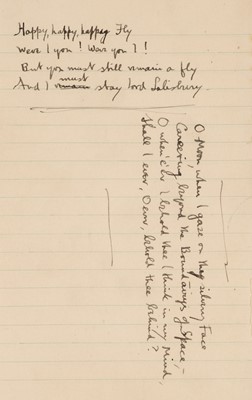 Happy, happy, happy Fly
Were I you! Were you I!
But you must still remain a fly
And I must stay Lord Salisbury
O Moon, when I gaze on thy silvery Face
Careering beyond the Boundarys of Space,—
O when e'er I behold thee I think in my Mind,
Shall I ever, O ever, behold thee behind?